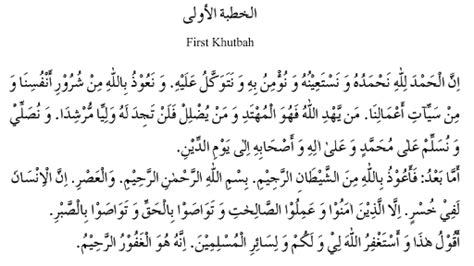 الخطبة الأولى
First Khutbah
اِنَّ الْحَمْدَ لِلّٰهِ نَحْمَدُهُ وَ نَسْتَعِيْنُهُ وَ نُؤْمِنُ بِهِ وَ نَتَوَكَّلُ عَلَيْهِ. وَ نَعُوْذُ بِاللهِ مِنْ شُرُوْرِ أَنْفُسِنَا وَ
مِنْ سَيِّاٰتِ أَعْمَالِنَا. مَن يَّهْدِ اللهُ فَهُوَ الْمُهْتَدِ وَ مَنْ يُضْلِلْ فَلَنْ تَجِدَ لَهُ وَلِيًّا مُّرْشِدًا. وَ نُصَلِّيْ
وَ نُسَلِّمُ عَلٰى مُحَمَّدٍ وَ عَلٰى اٰلِهِ وَ أَصْحَابِهِ اِلٰى يَوْمِ الدِّيْنِ.
أَمَّا بَعْدُ: فَأَعُوْذُ بِاللهِ مِنَ الشَّيْطَانِ الرَّجِيْمِ. بِسْمِ اللهِ الرَّحْمٰنِ الرَّحِيْمِ. وَالْعَصْرِ. اِنَّ الْاِنْسَانَ
لَفِيْ خُسْرٍ. اِلَّا الَّذِيْنَ اٰمَنُوْا وَ عَمِلُوْا الصّٰلِحٰتِ وَ تَوَاصَوْا بِالْحَقِّ وَ تَوَاصَوْا بِالصَّبْرِ.
أَقُوْلُ هٰذَا وَ أَسْتَغْفِرُ اللهَ لِيْ وَ لَكُمْ وَ لِسَائِرِ الْمُسْلِمِيْنَ. اِنَّهُ هُوَ الْغَفُوْرُ الرَّحِيْمُ.